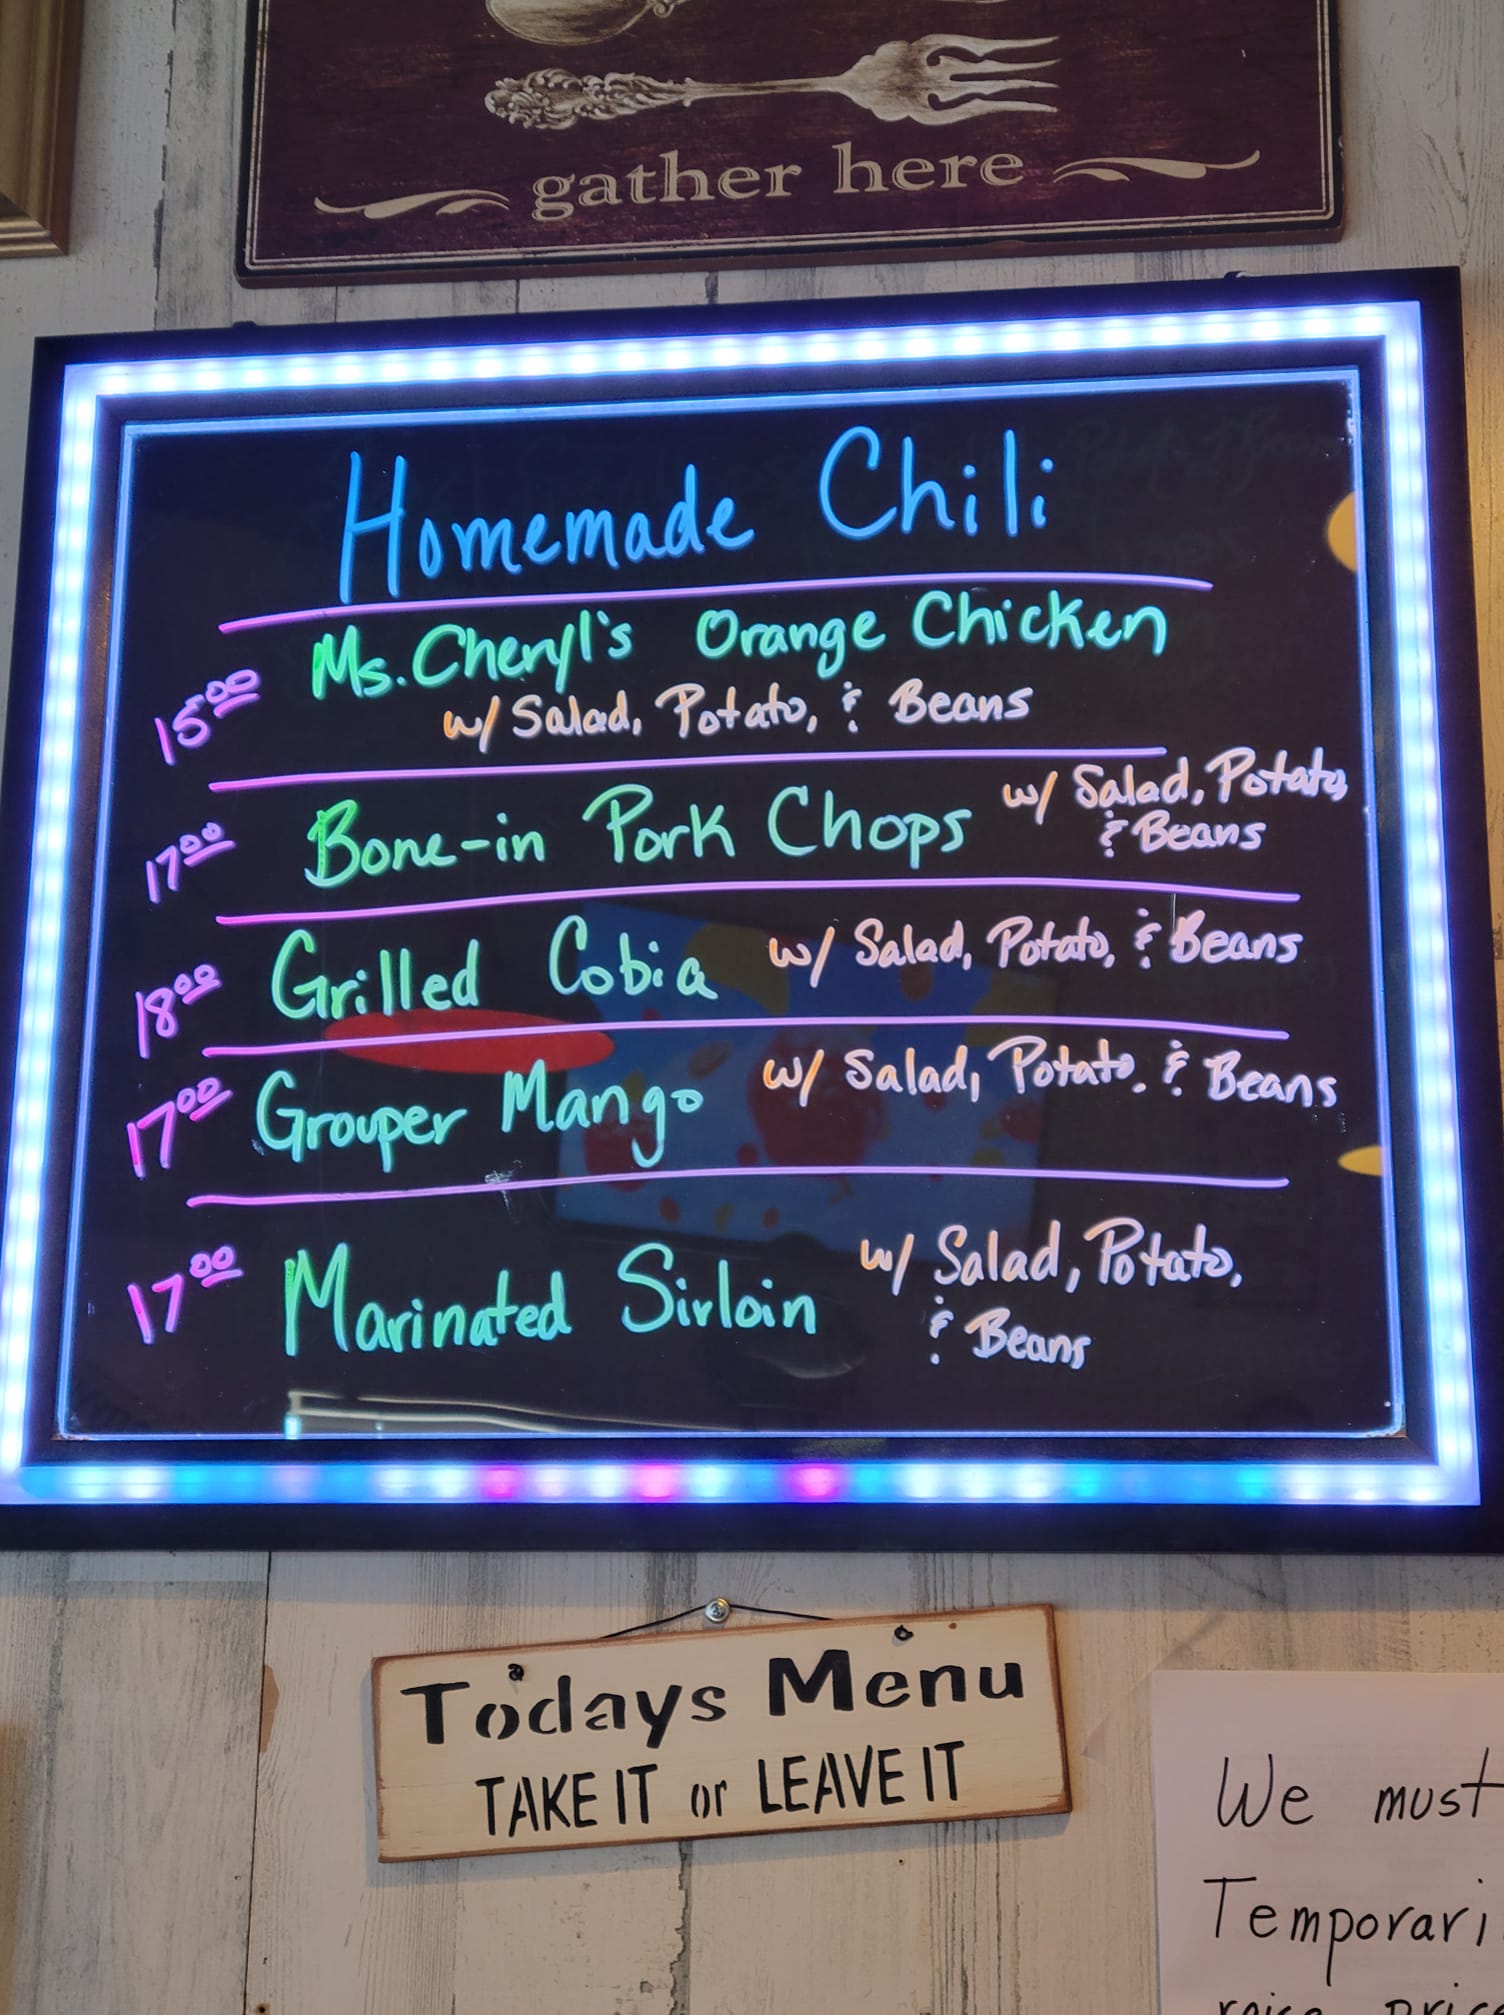 gather here
Homemade Chili
15.00 Ms. Cheryl's Orange Chicken
w/ Salad, Potato, & Beans
17.00 Bone-in Pork Chops w/ Salad, Potato,
& Beans
18.00 Grilled Cobia w/ Salad, Potato, & Beans
17.00 Grouper Mango w/ Salad, Potato, & Beans
17.00 Marinated Sirloin w/ Salad, Potato,
& Beans
Todays Menu
TAKE IT or LEAVE IT
We must
Temporari